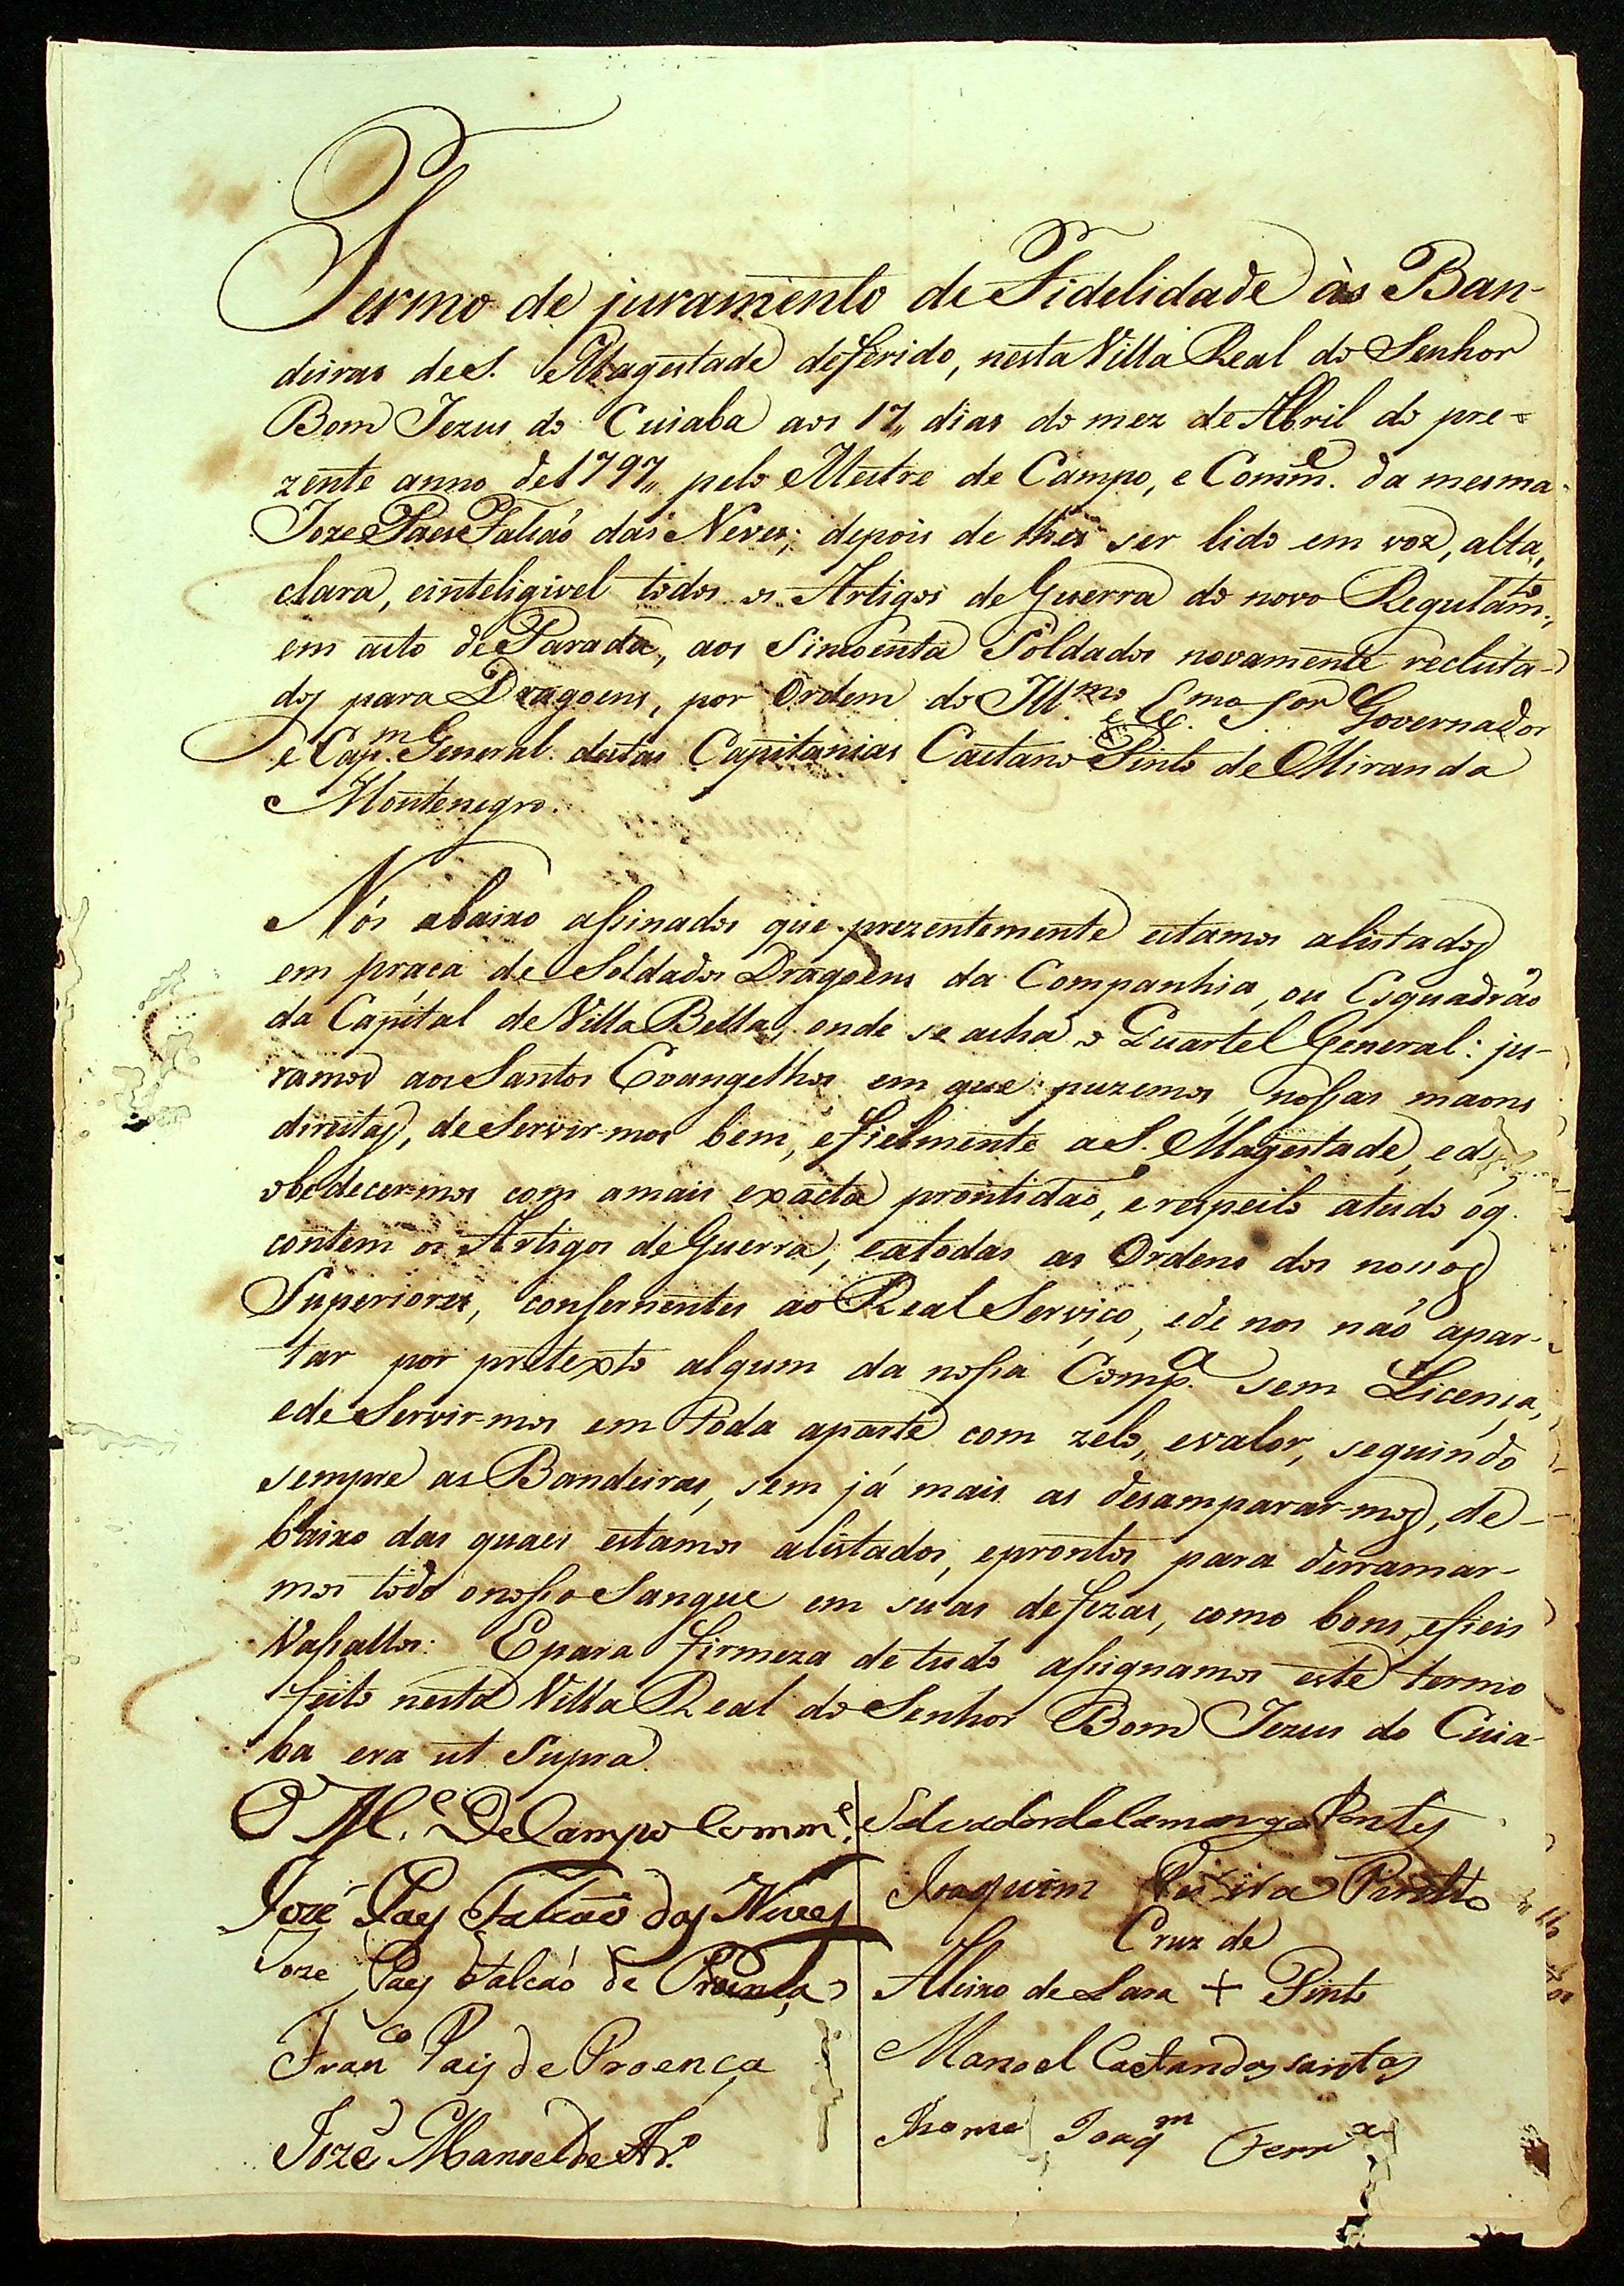 Termo de juramento de Fidelidade às Ban-
deiras de S. Magestade deferido, nesta Villa Real do Senhor
Bom Jezus do Cuiaba aos 17,, dias do mez de Abril do pre-
zente anno de 1797,, pelo Mestre de Campo, e Comm.e da mesma
Joze Paes Falcaõ das Neves; depois de lhes ser lido em voz, alta,
clara, einteligivel todos os Artigos de Guerra do novo Regulam.to,
em acto de Parada, aos Sincoenta Soldados novamente recluta-
dos para Dragoens, por Ordem do Ill.mo e Ex.mo S.or Governador
e Cap.m General destas Capitanias Caetano Pinto de Miranda
Montenegro.
Nós abaixo assinados que prezentemente estamos alistados
em praça de Soldados Dragoens da Companhia, ou Esquadrão
da Capital de Villa Bella, onde se acha o Quartel General: ju-
ramos aos Santos Evangelhos em que puzemos nossas maons
direitas, de Servir-mos bem, efielmente a S. Magestade, ede
obedecer-mos com amais exacta prontidaõ, erespeito atudo oq.
contem os Artigos de Guerra, eatodas as Ordens dos nossos
Superiores, confernentes ao Real Serviço, ede nos naõ apar-
tar por pretexto algum da nossa Comp.a sem Licença,
ede Servir-mos em toda aparte com zelo, evalor, seguindo
sempre as Bandeiras, sem já mais as desamparar-mos, de-
baixo das quaes estamos alistados, eprontos para derramar-
mos todo onosso Sangue em suas defezas, como bons, efieis
Vassallos: Epara firmeza de tudo assignamos este termo
feito nesta Villa Real do Senhor Bom Jezus do Cuia-
ba era ut Supra
O M.e De Campo Comm.e
José Paes Falcaõ das Neves
Joze Paes Falcaõ de Proença
Fran.co Pais de Proença
Joze Manoel de Ar.o
Salvador de Camargo Pontes
Joaquim
Cruz de
Aleixo de Lara + Pinto
Manoel Caetano dos santos
Thome Joaq.m Ferr.a